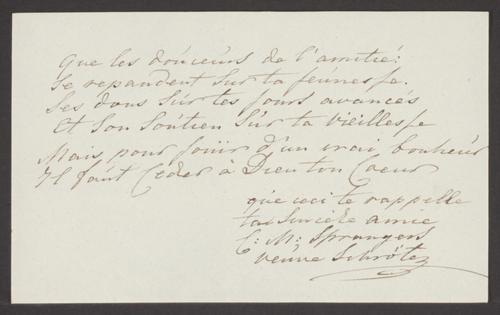 Que les douceurs de l'amitié:
Se repandent sur ta jeunesse.
Ses dons sur tes jours avancés
Et son soutien sur ta vieillesse
Mais pour jouir d'un vrai bonheur
Il faut Ceder à Dieu ton Coeur
que ceci te rappelle
ta sincère amie
C: M: Sprangers
veuve Schröte